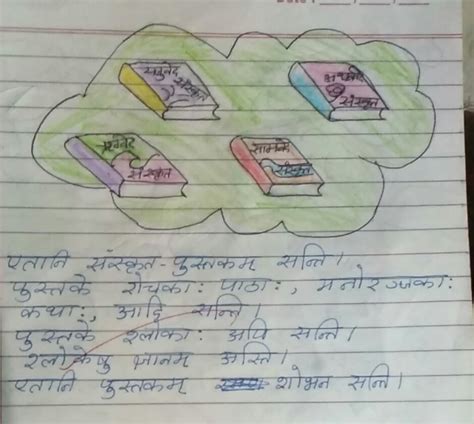 Date : ___, ___, ___
यजुर्वेद
संस्कृत
अथर्ववेद
संस्कृत
ऋग्वेद
संस्कृत
सामवेद
संस्कृत
एतानि संस्कृत-पुस्तकम् सन्ति।
पुस्तके रोचकाः पाठाः, मनोरञ्जकाः
कथाः, आदि सन्ति।
पुस्तके श्लोकाः अपि सन्ति।
श्लोकेषु ज्ञानम् अस्ति।
एतानि पुस्तकम् शोभन सन्ति।